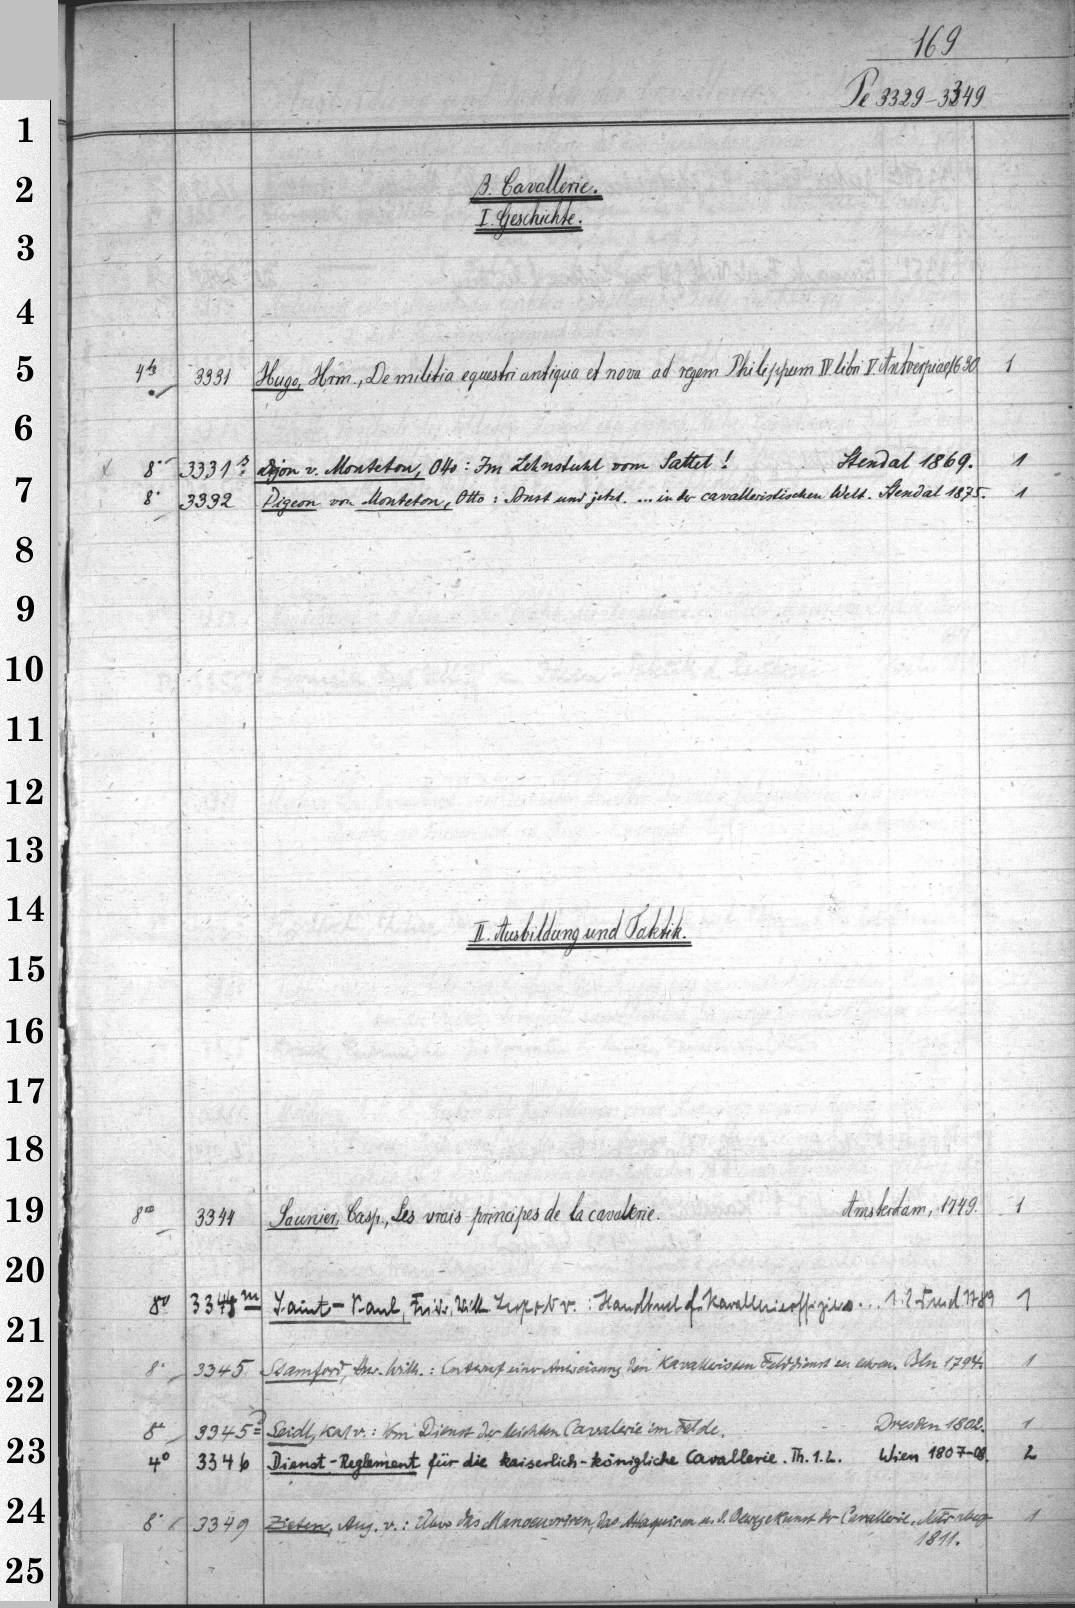 169
Pe 3329-3349
1
2
B. Cavallerie.
I. Geschichte.
3
4
5
4to 3331 Hugo, Hrm., De militia equestri antiqua et nova ad regem Philippum IV. libri V. Antverpiae 1630 1
6
8° 3331 v. Monteton, Otto: Im Lehnstuhl vom Sattel! Stendal 1869. 1
7
8° 3332 Digeon von Monteton, Otto: Einst und jetzt. ... in der cavalleristischen Welt. Stendal 1875. 1
8
9
10
11
12
13
14
II. Ausbildung und Taktik.
15
16
17
18
19
8vo 3341 Saunier, Casp., Les vrais principes de la cavalerie. Amsterdam, 1749. 1
20
8° 334 m Saint-Paul, Friedr. Wilh. Leopold v.: Handbuch f. Kavallerieoffiziere... 1789 1
21
8° 3345 Stamford, Wilh.: Entwurf einer Anweisung den Kavalleristen Felddienst zu lehren. Bln 1794. 1
22
8° 3345a Seidl, Karl v.: Vom Dienst der leichten Cavalerie im Felde. Dresden 1802. 1
23
4° 3346 Dienst-Reglement für die kaiserlich-königliche Cavallerie. Th. 1.2. Wien 1807-08. 2
24
8° 3349 Zieten, Aug. v.: Über das Manoeuvriren, das Attaquiren u. d. Bewegekunst der Cavallerie. Nürnberg 1
1811.
25